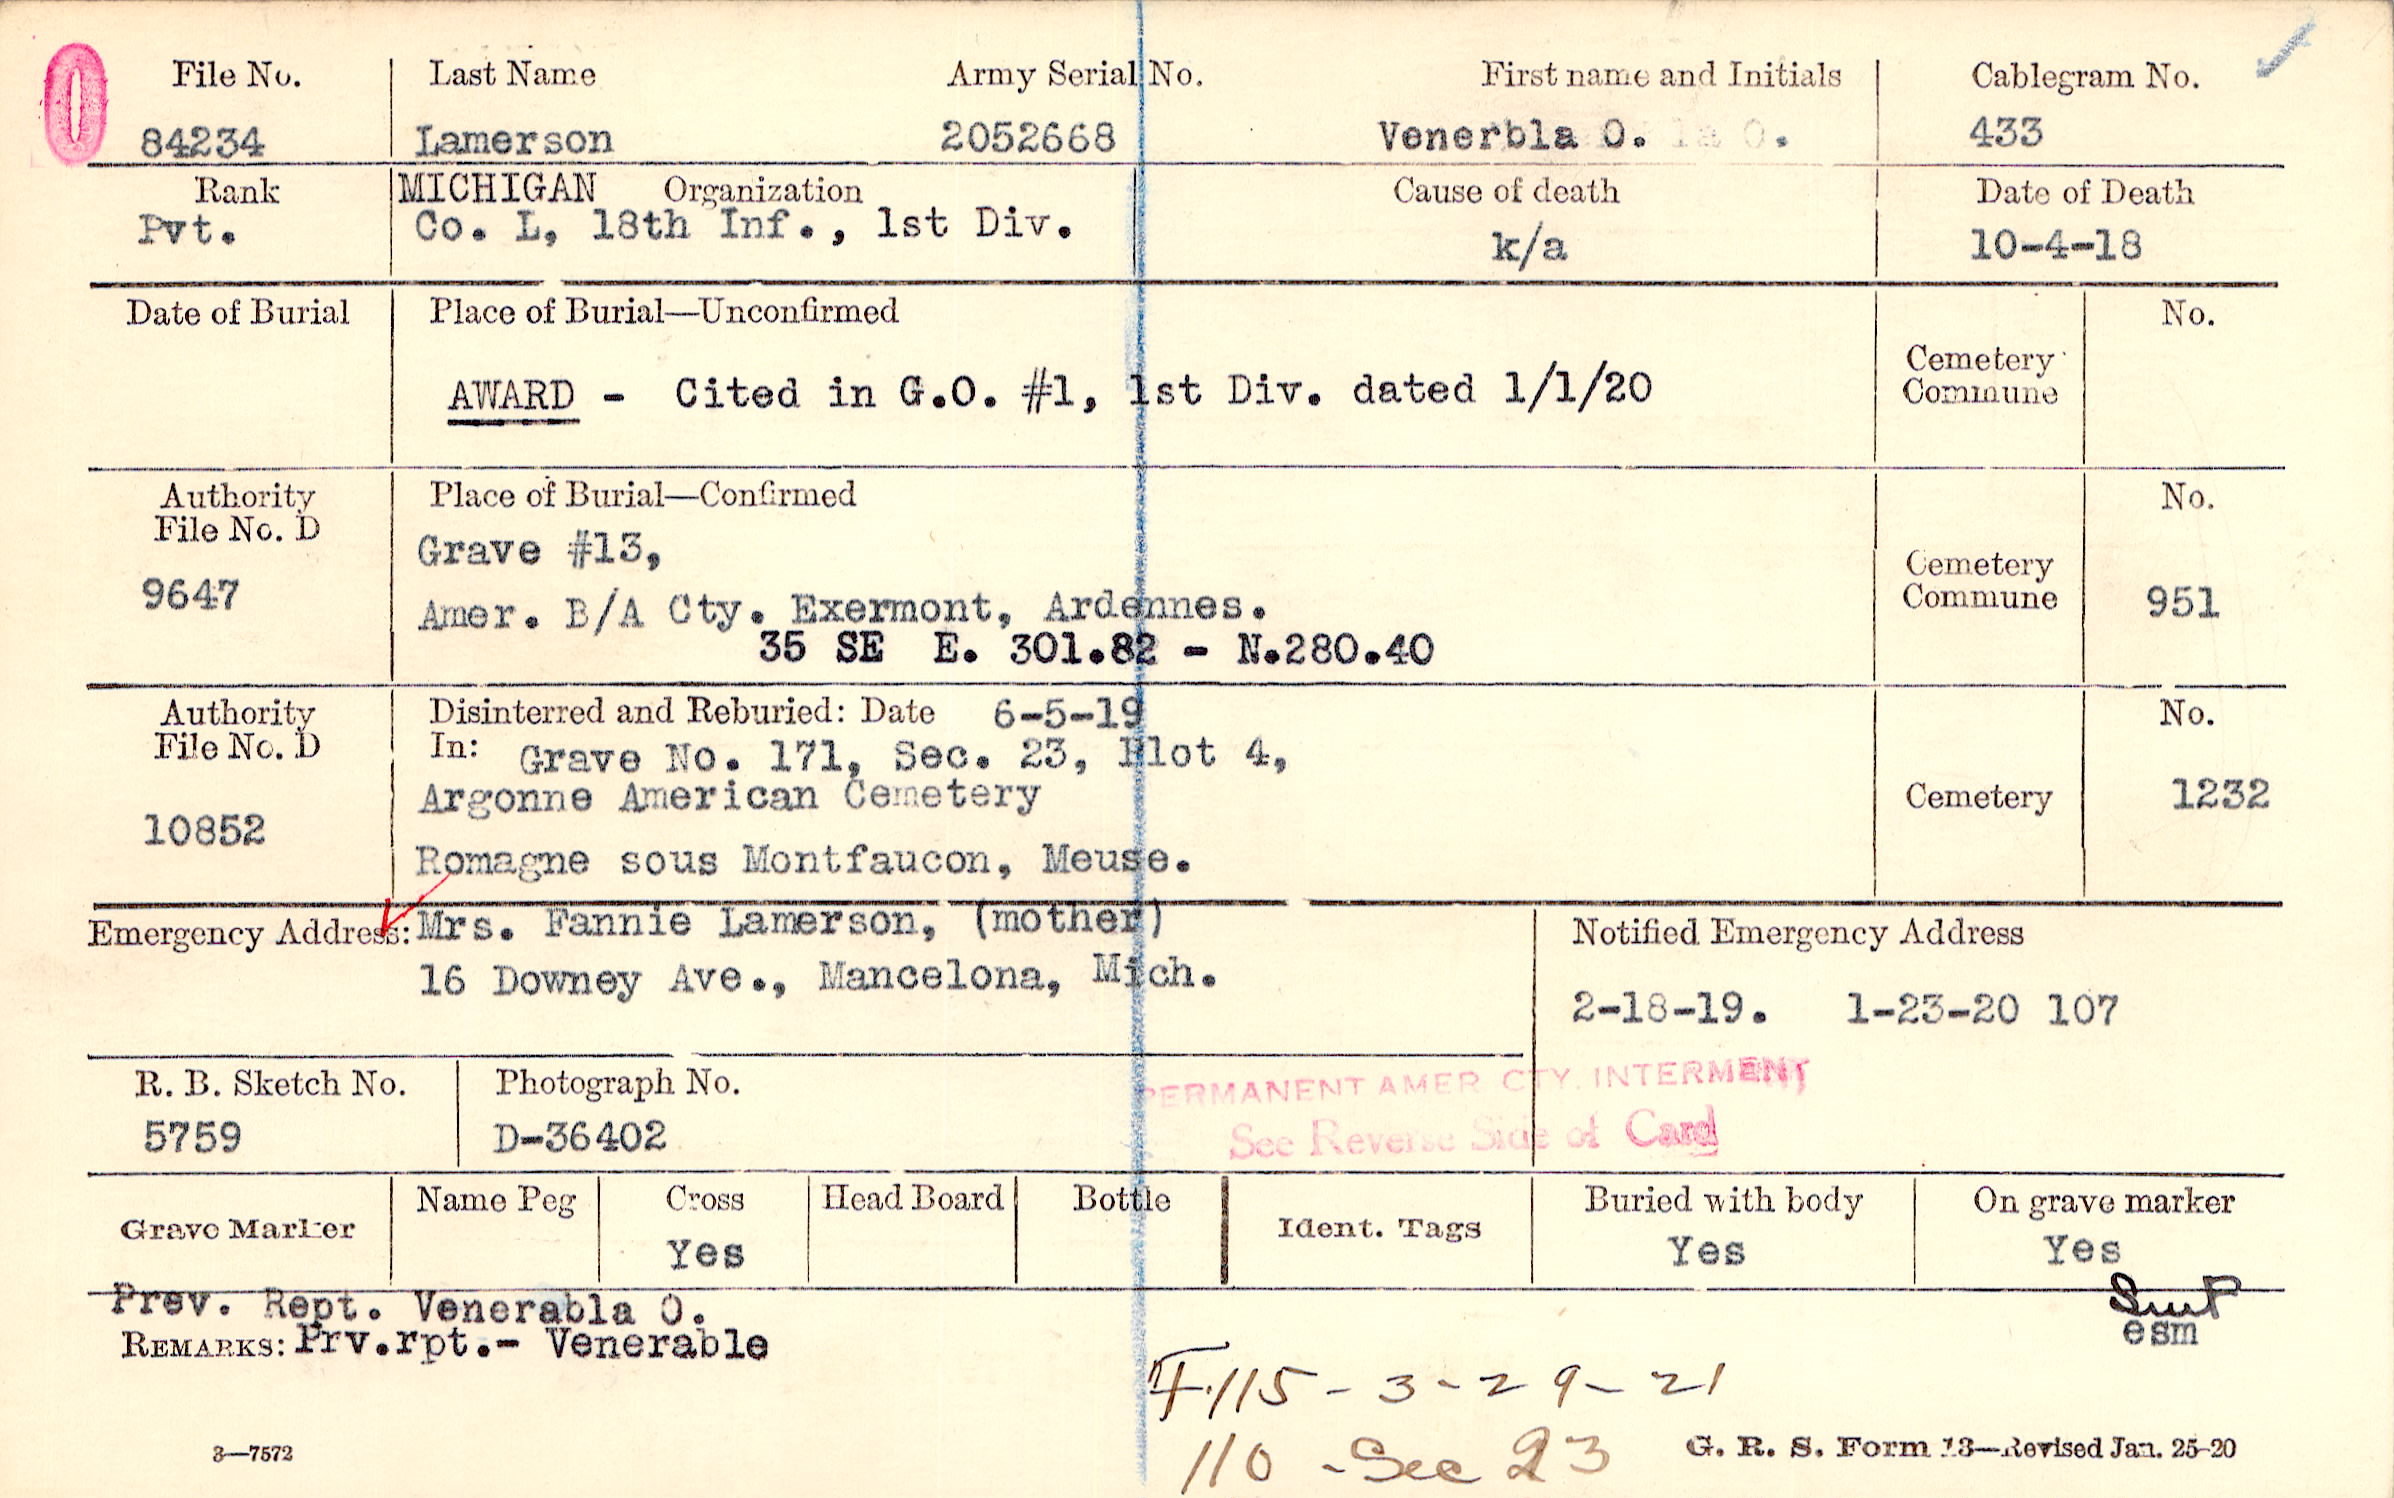 File No.
84234
Last Name
Lamerson
Army Serial No.
2052668
First name and Initials
Venerbla O. la O.
Cablegram No.
433
Rank
Pvt.
MICHIGAN Organization
Co. L, 18th Inf., 1st Div.
Cause of death
k/a
Date of Death
10-4-18
Date of Burial
Place of Burial—Unconfirmed
AWARD - Cited in G.O. #1, 1st Div. dated 1/1/20
Cemetery
Commune
No.
Authority
File No. D
9647
Place of Burial—Confirmed
Grave #13,
Amer. B/A Cty. Exermont, Ardennes.
35 SE E. 301.82 - N.280.40
Cemetery
Commune
No.
951
Authority
File No. D
10852
Disinterred and Reburied: Date 6-5-19
In: Grave No. 171, Sec. 23, Plot 4,
Argonne American Cemetery
Romagne sous Montfaucon, Meuse.
Cemetery
No.
1232
Emergency Address: Mrs. Fannie Lamerson, (mother)
16 Downey Ave., Mancelona, Mich.
Notified Emergency Address
2-18-19. 1-23-20 107
R. B. Sketch No.
5759
Photograph No.
D-36402
PERMANENT AMER CTY. INTERMENT
See Reverse Side of Card
Grave Marker
Name Peg
Cross
Yes
Head Board
Bottle
Ident. Tags
Buried with body
Yes
On grave marker
Yes
esm
Prev. Rept. Venerabla O.
REMARKS: Prv.rpt.- Venerable
F.115 - 3-29-21
110 - Sec 23
3—7572
G. R. S. Form 13—Revised Jan. 25-20